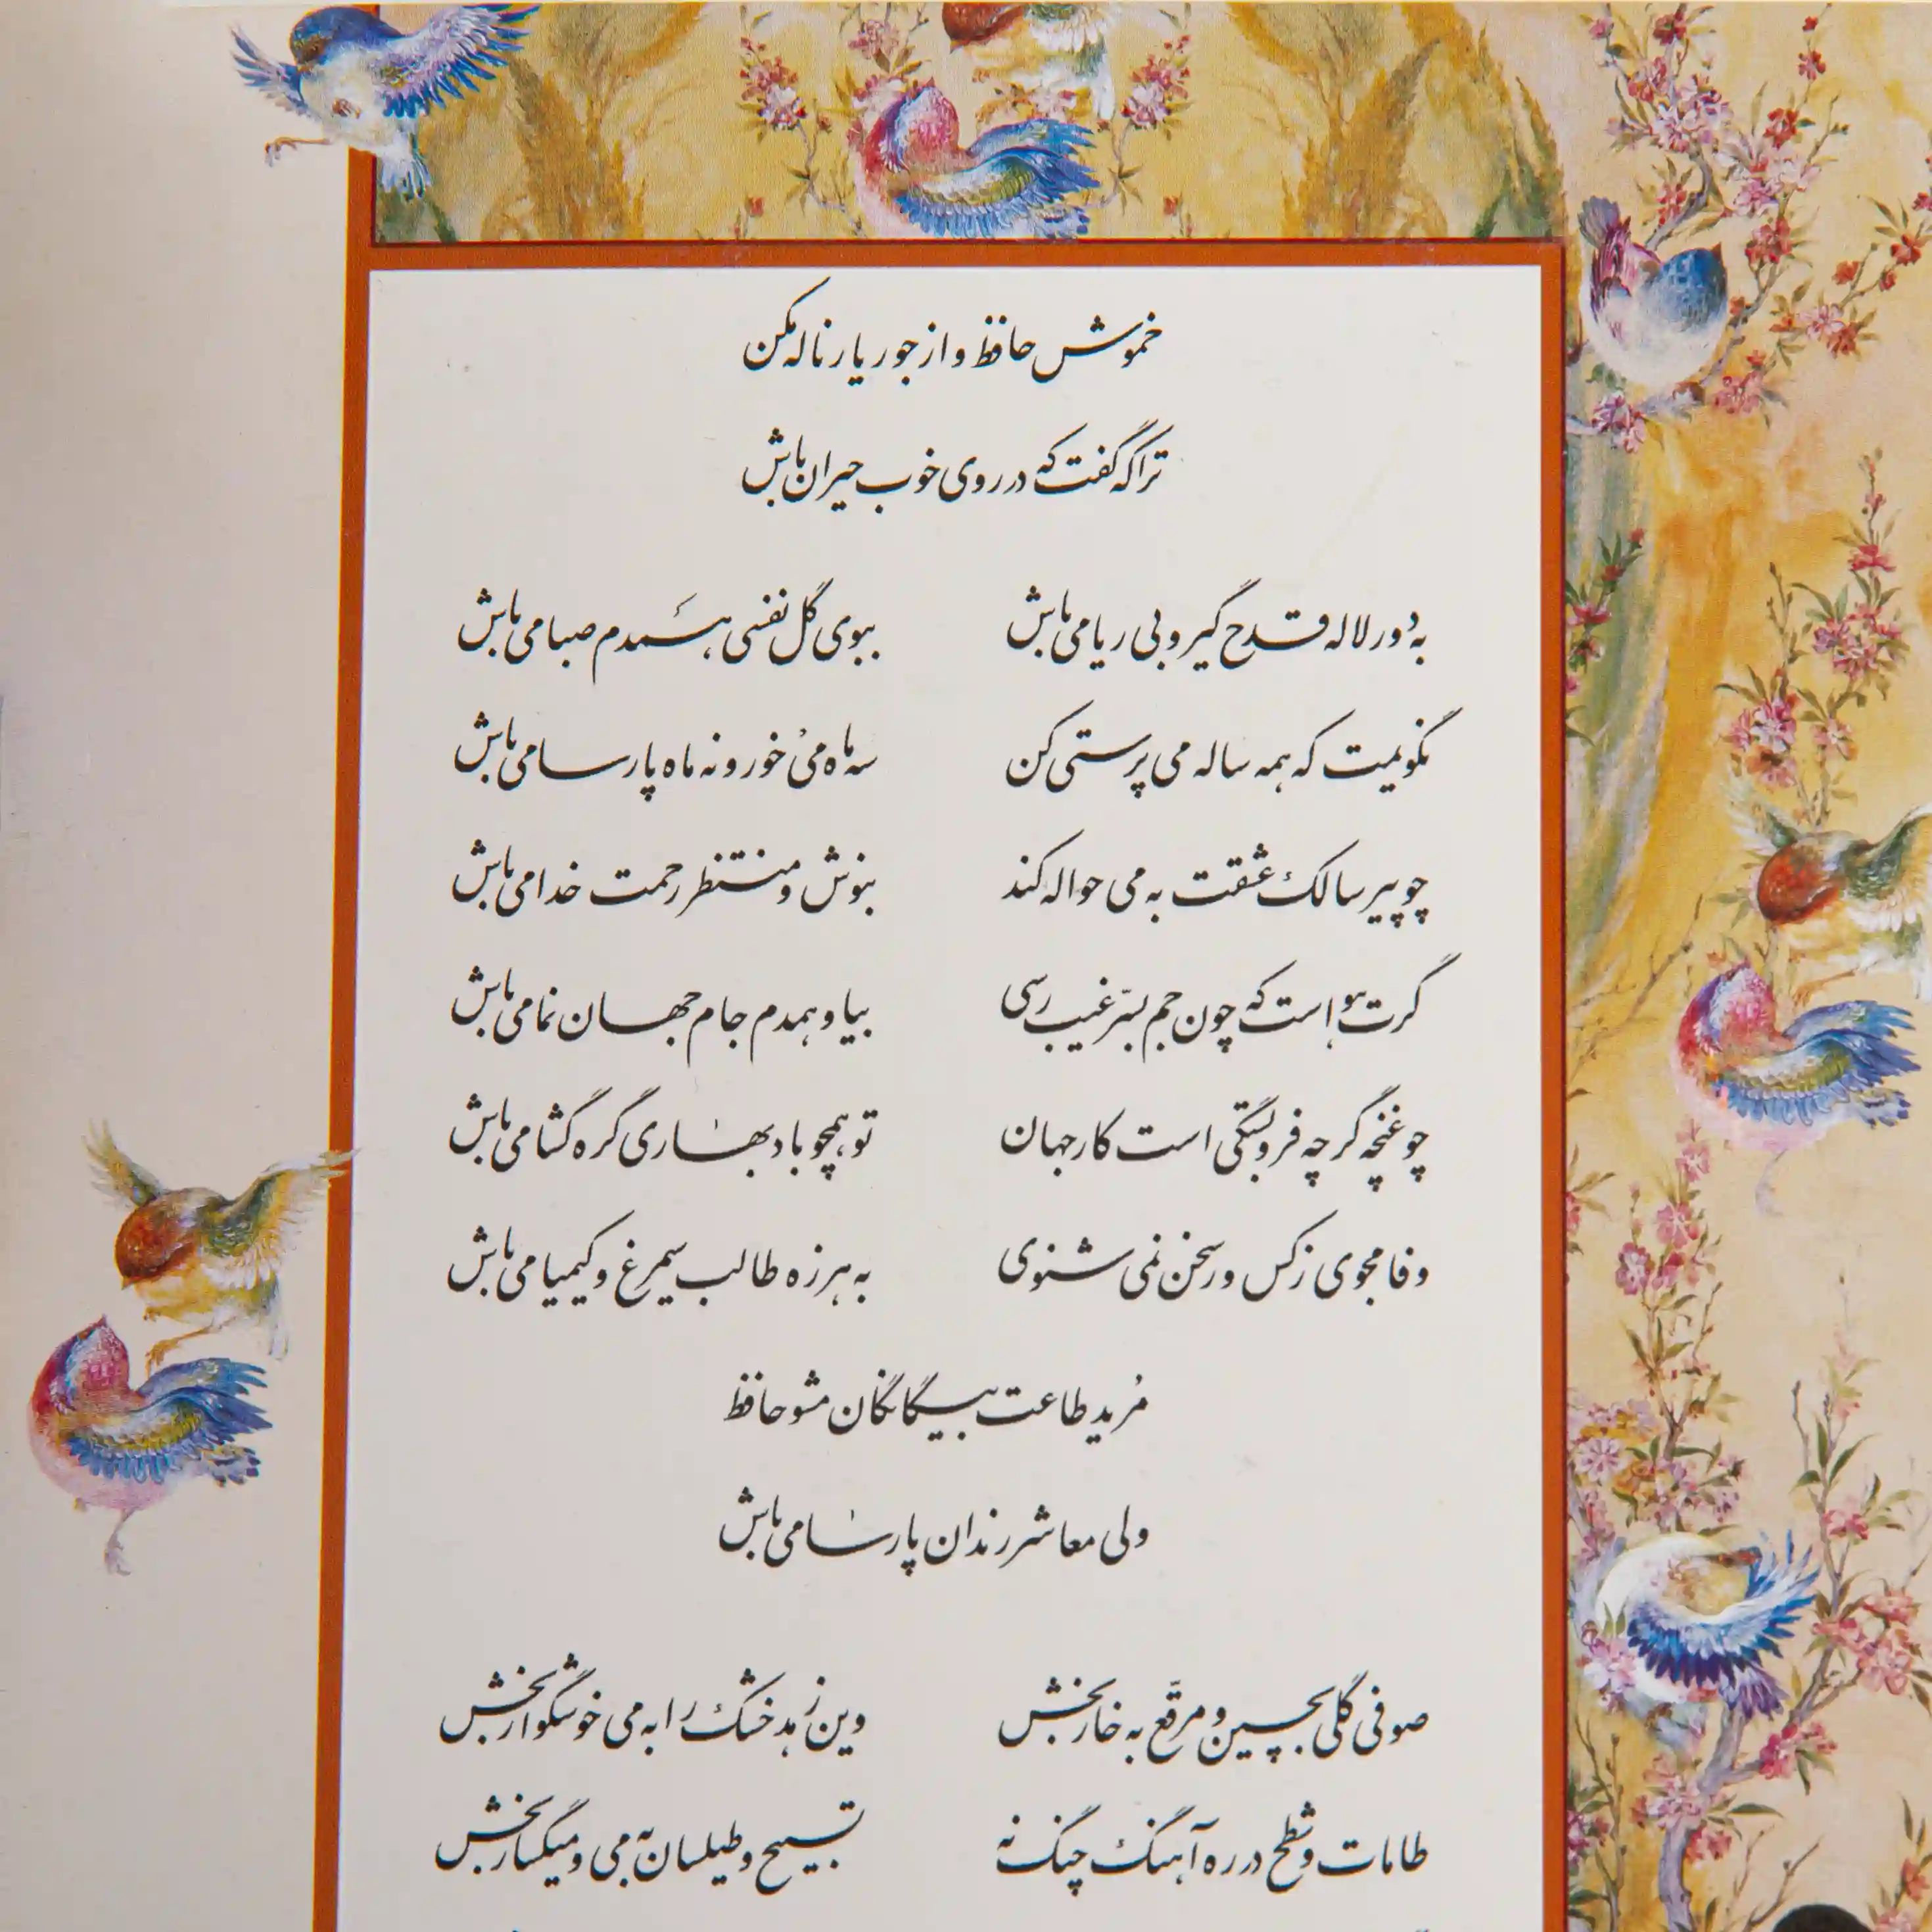 خموش حافظ و از جور یار ناله مکن
ترا که گفت که در روی خوب حیران باش
به دور لاله قدح گیر و بی ریا می باش ببوی گل نفسی همدم صبا می باش
نگویمت که همه ساله می پرستی کن سه ماه می خور و نه ماه پارسا می باش
چو پیر سالک عشقت به می حواله کند بنوش و منتظر رحمت خدا می باش
گرت هواست که چون جم بسرّ غیب رسی بیا و همدم جام جهان نما می باش
چو غنچه گر چه فروبستگی است کار جهان تو همچو باد بهاری گره گشا می باش
وفا مجوی ز کس ور سخن نمی شنوی به هرزه طالب سیمرغ و کیمیا می باش
مُرید طاعت بیگانگان مشو حافظ
ولی معاشر رندان پارسا می باش
صوفی گلی بچین و مرقّع به خار بخش وین زهد خشک را به می خوشگوار بخش
طامات و شطح در ره آهنگ چنگ نه تسبیح و طیلسان به می و میگسار بخش